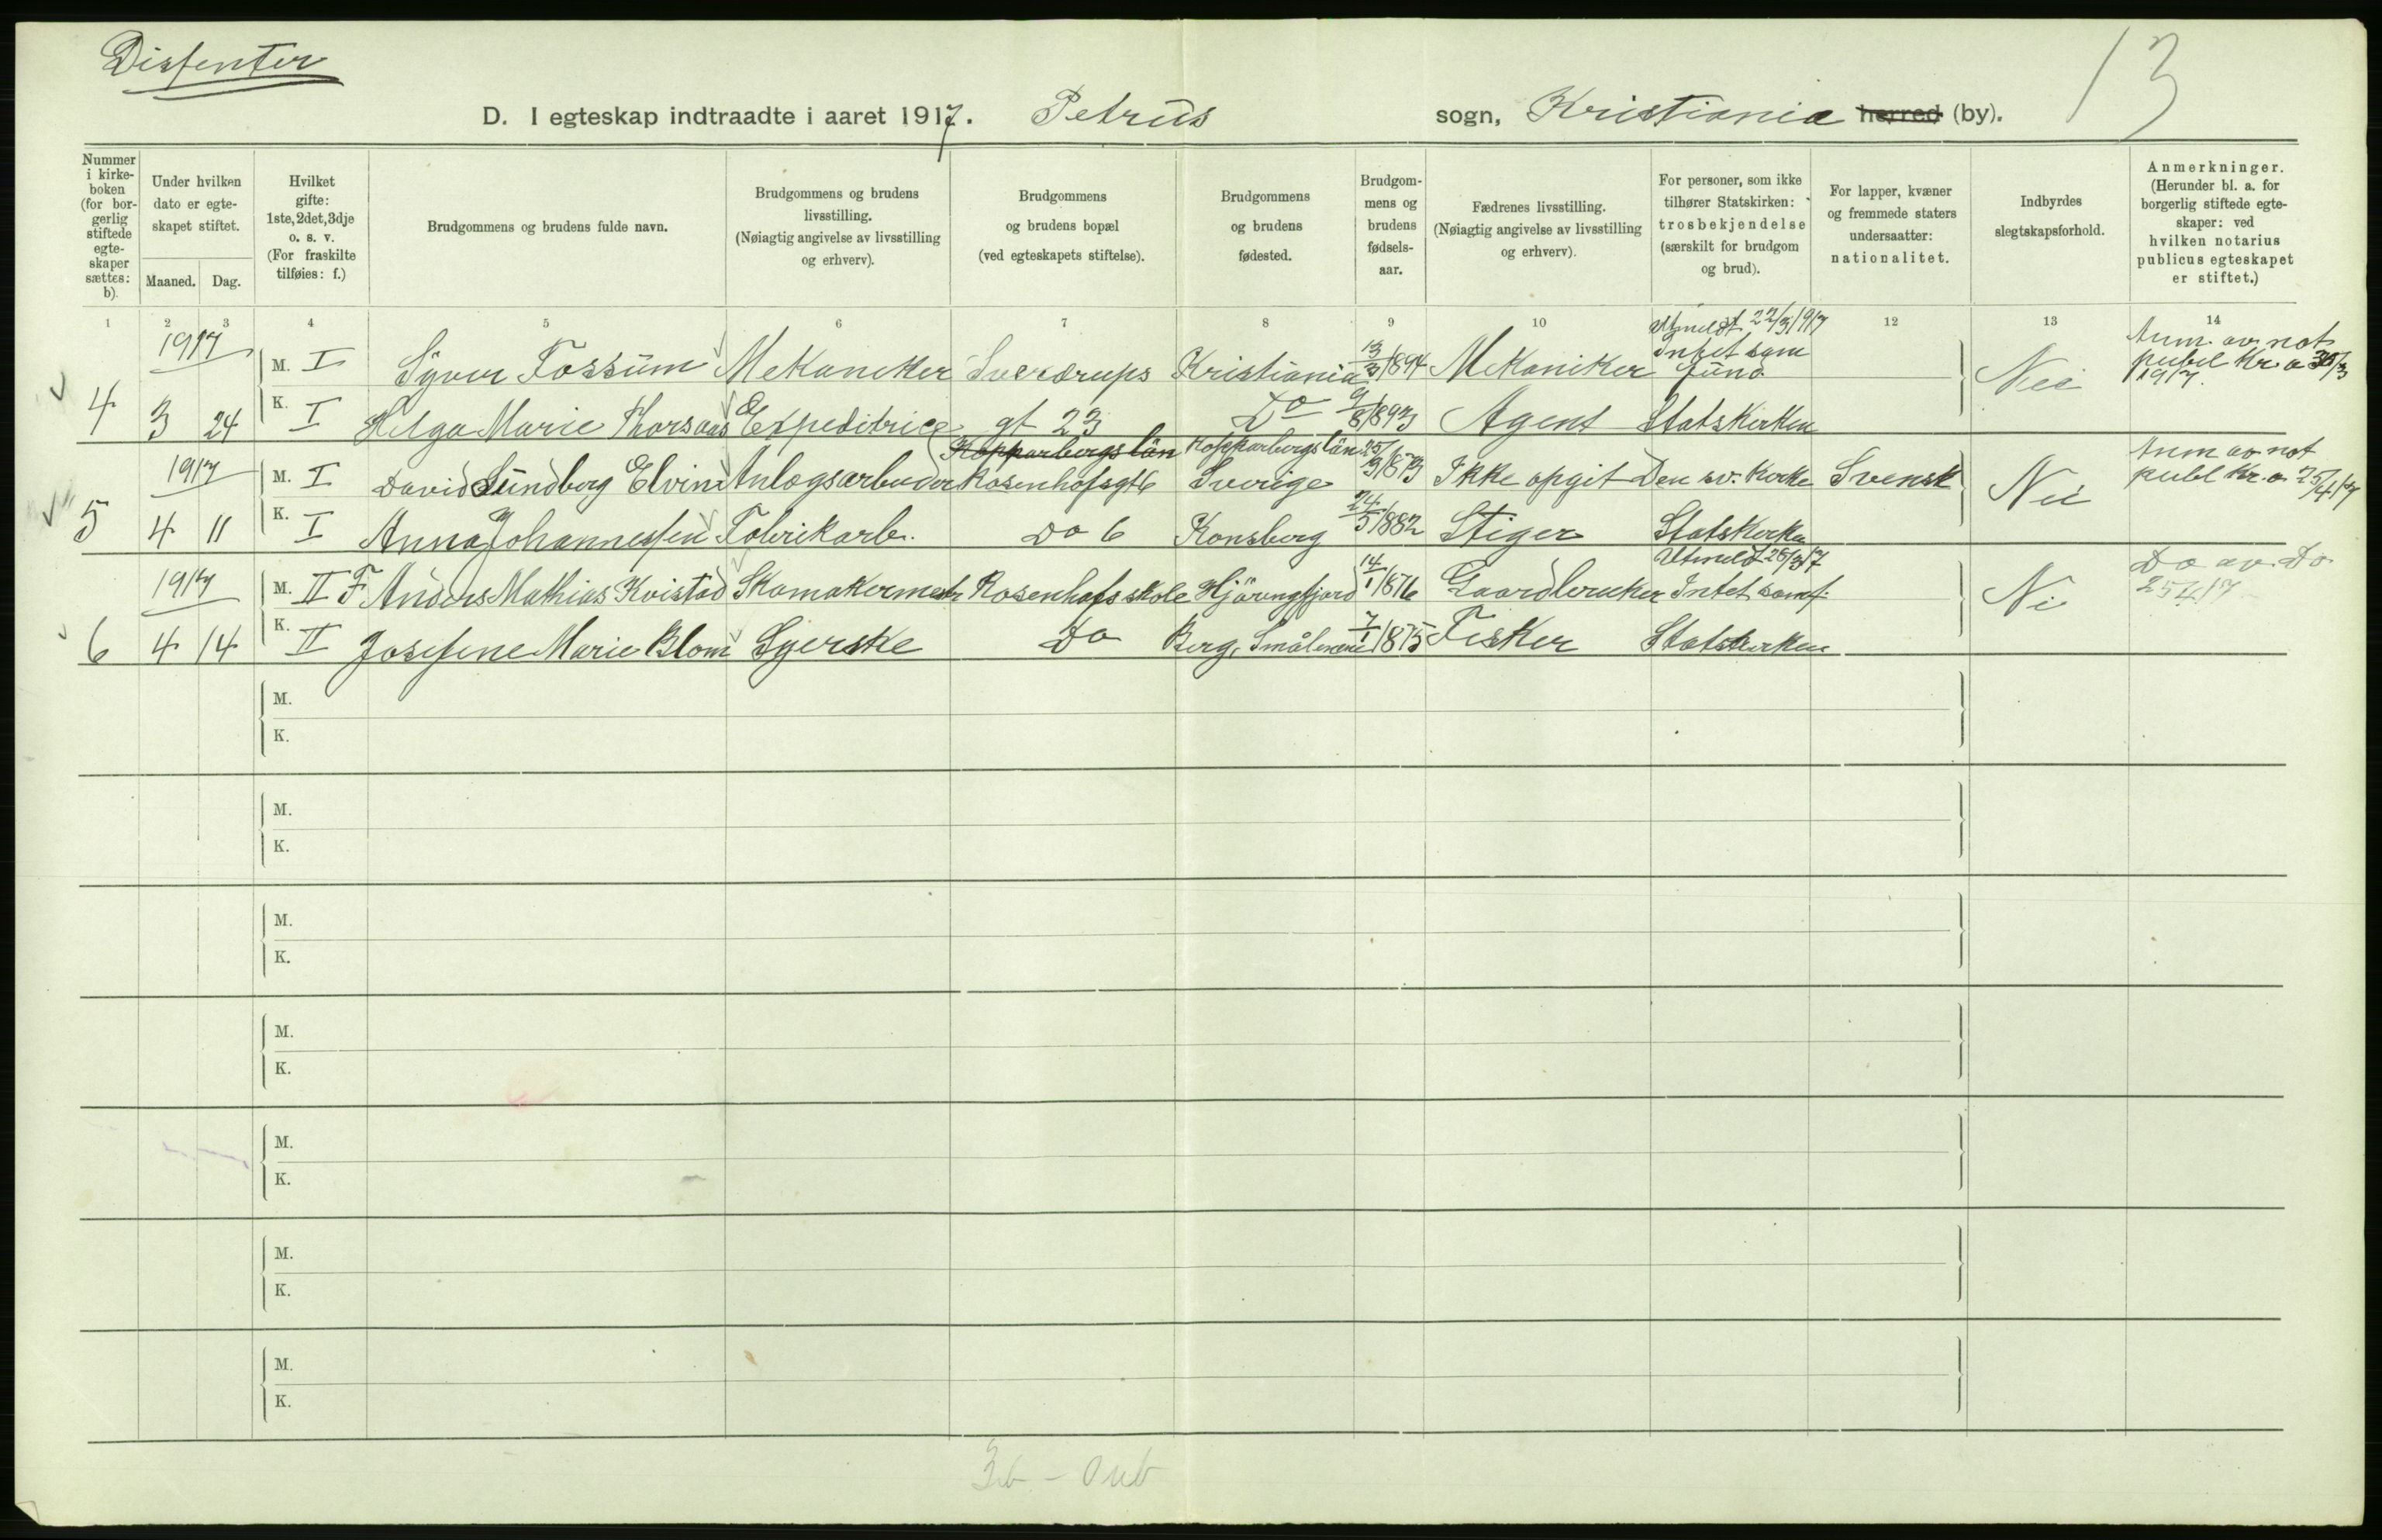 Dissenter
13
D. I egteskap indtraadte i aaret 1917. Petrus sogn, Kristiania herred (by).
Nummer i kirkeboken (for borgerlig stiftede egteskaper sættes: b).
Under hvilken dato er egteskapet stiftet.
Maaned. Dag.
Hvilket gifte: 1ste, 2det, 3dje o. s. v. (For fraskilte tilføies: f.)
Brudgommens og brudens fulde navn.
Brudgommens og brudens livsstilling. (Nøiagtig angivelse av livsstilling og erhverv).
Brudgommens og brudens bopæl (ved egteskapets stiftelse).
Brudgommens og brudens fødested.
Brudgommens og brudens fødselsaar.
Fædrenes livsstilling. (Nøiagtig angivelse av livsstilling og erhverv).
For personer, som ikke tilhører Statskirken: trosbekjendelse (særskilt for brudgom og brud).
For lapper, kvæner og fremmede staters undersaatter: nationalitet.
Indbyrdes slegtskapsforhold.
Anmerkninger. (Herunder bl. a. for borgerlig stiftede egteskaper: ved hvilken notarius publicus egteskapet er stiftet.)
1 2 3 4 5 6 7 8 9 10 12 13 14
1917 M. I Syver Fossum Mekaniker Sverdrups Kristiania 13/3 1894 Mekaniker Utmeldt 22/3 1917 Intet samfund Nei Anm. av not publ Kr.a 1917.
4 3 24 K. I Helga Marie Thorsaas Expeditrice gt 23 Do 9/8 1893 Agent Statskirken
1917 M. I David Sundberg Elvin Anlægsarbeider Kopparbergs län Rosenhofsgt 6 Kopparbergs län Sverige 25/3 1873 Ikke opgit Den sv. kirke Svensk Nei Anm av not publ Kr.a 25/4 17
5 4 11 K. I Anna Johannessen Fabrikarb. Do 6 Konsberg 24/5 1882 Stiger Statskirken
1917 M. II F Anders Mathias Kvistad Skomakermestr Rosenhofs skole Hjörungfjord 14/1 1876 Gaardbruker Utmeldt 28/3 17 Intet samf. Nei Do av Do 25 4 17
6 4 14 K. II Josefine Marie Blom Syerske Do Berg, Smålenene 7/1 1875 Fisker Statskirken
M.
K.
M.
K.
M.
K.
M.
K.
M.
K.
M.
K.
M.
K.